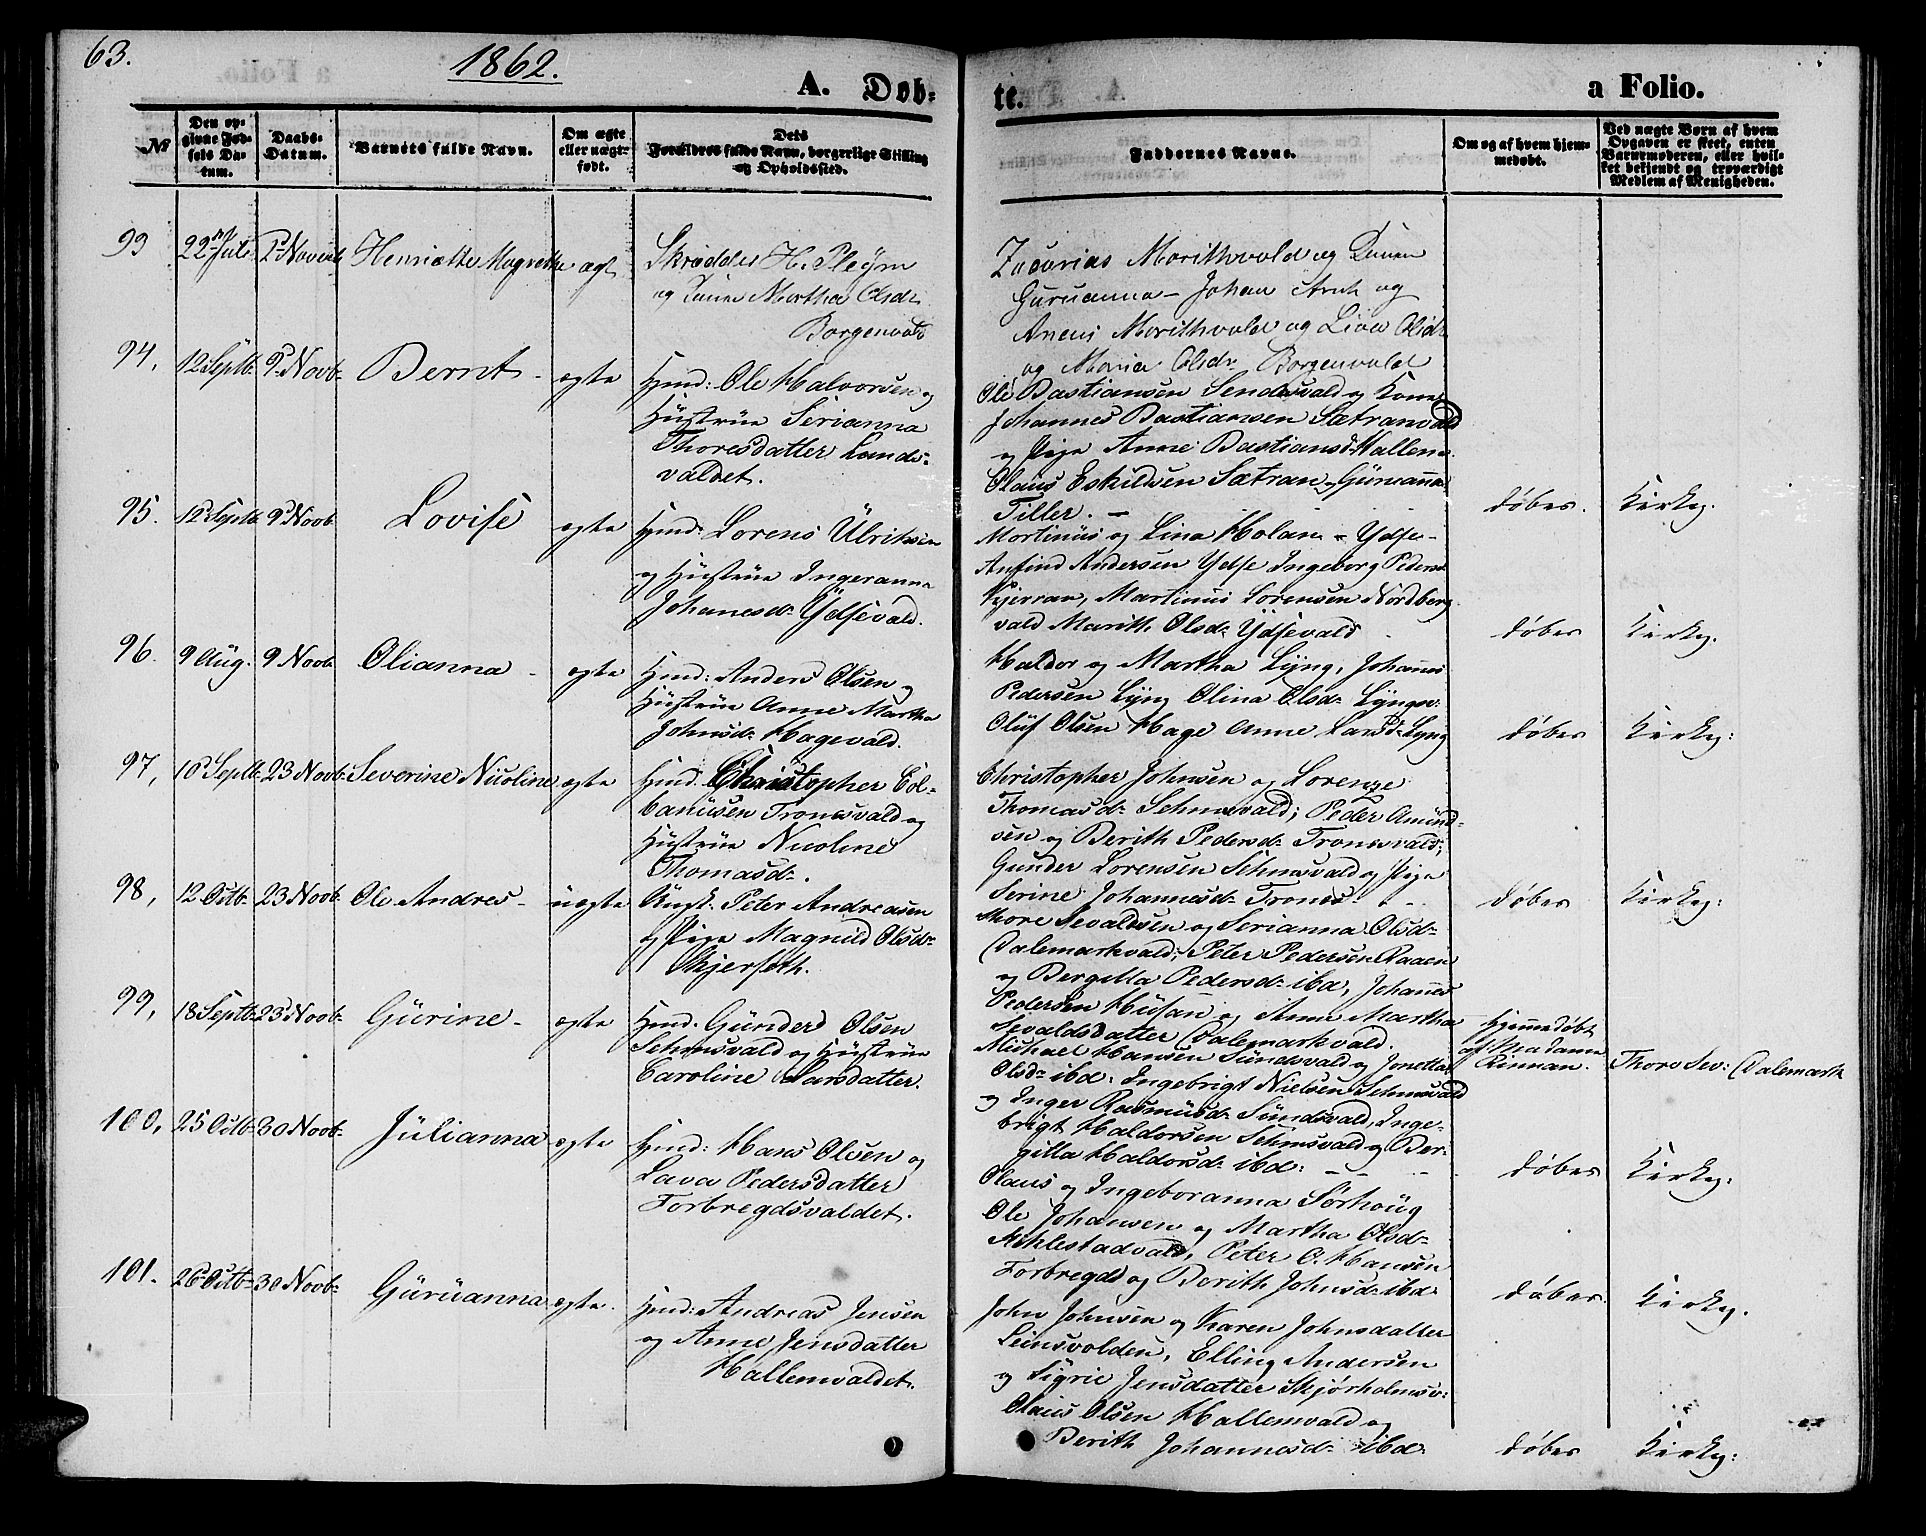 63.
1862.
A. Døb-
te.
a Folio.
№
Den op-
givne Fød-
sels Da-
tum.
Daabs-
Datum.
Barnets fulde Navn.
Om ægte
eller uægte
født.
Dets
Forældres fulde Navn, borgerlige Stilling
og Opholdssted.
Faddernes Navne.
Om og af hvem hjem-
medøbt.
Ved uægte Børn af hvem
Opgaven er skeet, enten
Barnemoderen, eller hvil-
ket bekjendt og troværdigt
Medlem af Menigheden.
93 22 Juli Novemb Henriette Magrethe ægt Skrædder H. Pleÿm
og Martha Olsdr
Borgenvald
Zacarias Morithvold og
Guruanna - Johan og
Morithvold og Olsdr
og Maria Olsdr Borgenvald
94, 12 Septb- 9 Novb- Bernt - ægte Hmd: Ole Halvorsen og
Hustrüe Serianna
Thoresdatter Lunds-
valdet.
Ole Bastiansen Sendesvald og Kone
Johannes Bastiansen Sætranvald
og Pige Anne Bastiansd. Hallem
Olaus Eskildsen Sætran - Güruanna
Tiller. - døbes. Kirkeg.
95. 12 Septb 9 Novb Lovise ægte Hmd: Lorens Ülriksen
og Hüstrüe Ingeranna
Johanesdr Ÿdsevald.
Martinus og Lina Holan - Ydse -
Anfind Andersen Ydse Ingeborg Peders
Kjerran, Martinus Lorensen Nordberg
vald Marith Olsdr Ydsevald døbes Kirkeg.
96. 9 Aüg. 9 Novb Olianna - ægte Hmd: Anders Olsen og
Hüstrüe Anne Martha
Johnsdr Hagevald.
Haldor og Martha Lÿng, Johannes
Pedersen Lÿng Olina Olsdr Lÿngsv:
Olüf Olsen Hage Anne Larsdr Lÿng døbes Kirkeg:
97, 10 Septb- 23 Novb- Severine Nicoline ægte Hmd: Christopher Col-
banüsen Tronesvald og
Hüstrüe Nicoline
Thomasdr.
Christopher Johnsen og Lorenze
Thomasdr Sehmsvald; Peder Amünd-
sen og Berith Pedersdr Tronesvald;
Gunder Lorensen Sehmsvald og Pige
Serine Johannesdr Trones - døbes Kirkeg:
98, 12 Octb- 23 Novb Ole Andres - üægte Üngk: Peter Andreasen
og Pige Magnild Olsdr
Skjerseth.
Thore Sevaldsen og Serianna Olsdr
Dalemarkvald; Peter Pedersen Raaen
og Bergitta Pedersdr ibd, Johannes
Pedersen Hüsan og Anne Martha
Sevaldsdatter Dalemarkvald.
Hjemmedøbt
af Madame
Rinnan. Thore Sev: Dalemark
99, 18 Septb- 23 Novb- Gürine - ægte Hmd: Günder Olsen
Sehmsvald og Hüstrüe
Caroline Larsdatter.
Michael Hansen Sündsvald og Jonetta
Olsdr ibd. Ingebrigt Nielsen Sehmsvald
og Inger Rasmüsdr Sündsvald, Inge-
brigt Haldorsen Sehmsvald og Ber-
gitta Haldorsdr ibd: - døbes Kirkeg:
100, 25 Octb- 30 Novb- Jülianna ægte Hmd: Hans Olsen og
Lava Pedersdatter
Forbregdsvaldet.
Olaus og Ingeboranna Sørhoüg
Ole Johansen og Martha Olsdr
Mehlestadvald, Peter O. Hansen
Forbregds og Berith Johnsdr ibd. døbes. Kirkeg.
101. 26 Octb- 30 Novb- Güruanna ægte. Hmd: Andreas Jensen
og Anne Jensdatter
Hallemvaldet.
John Johnsen og Karen Johnsdatter
Leinsvolden, Elling Andersen
og Sigrie Jensdatter Skjørholmsv:
Olaus Olsen Hallemvald og
Berith Johannesdr ibd. døbes Kirkeg: